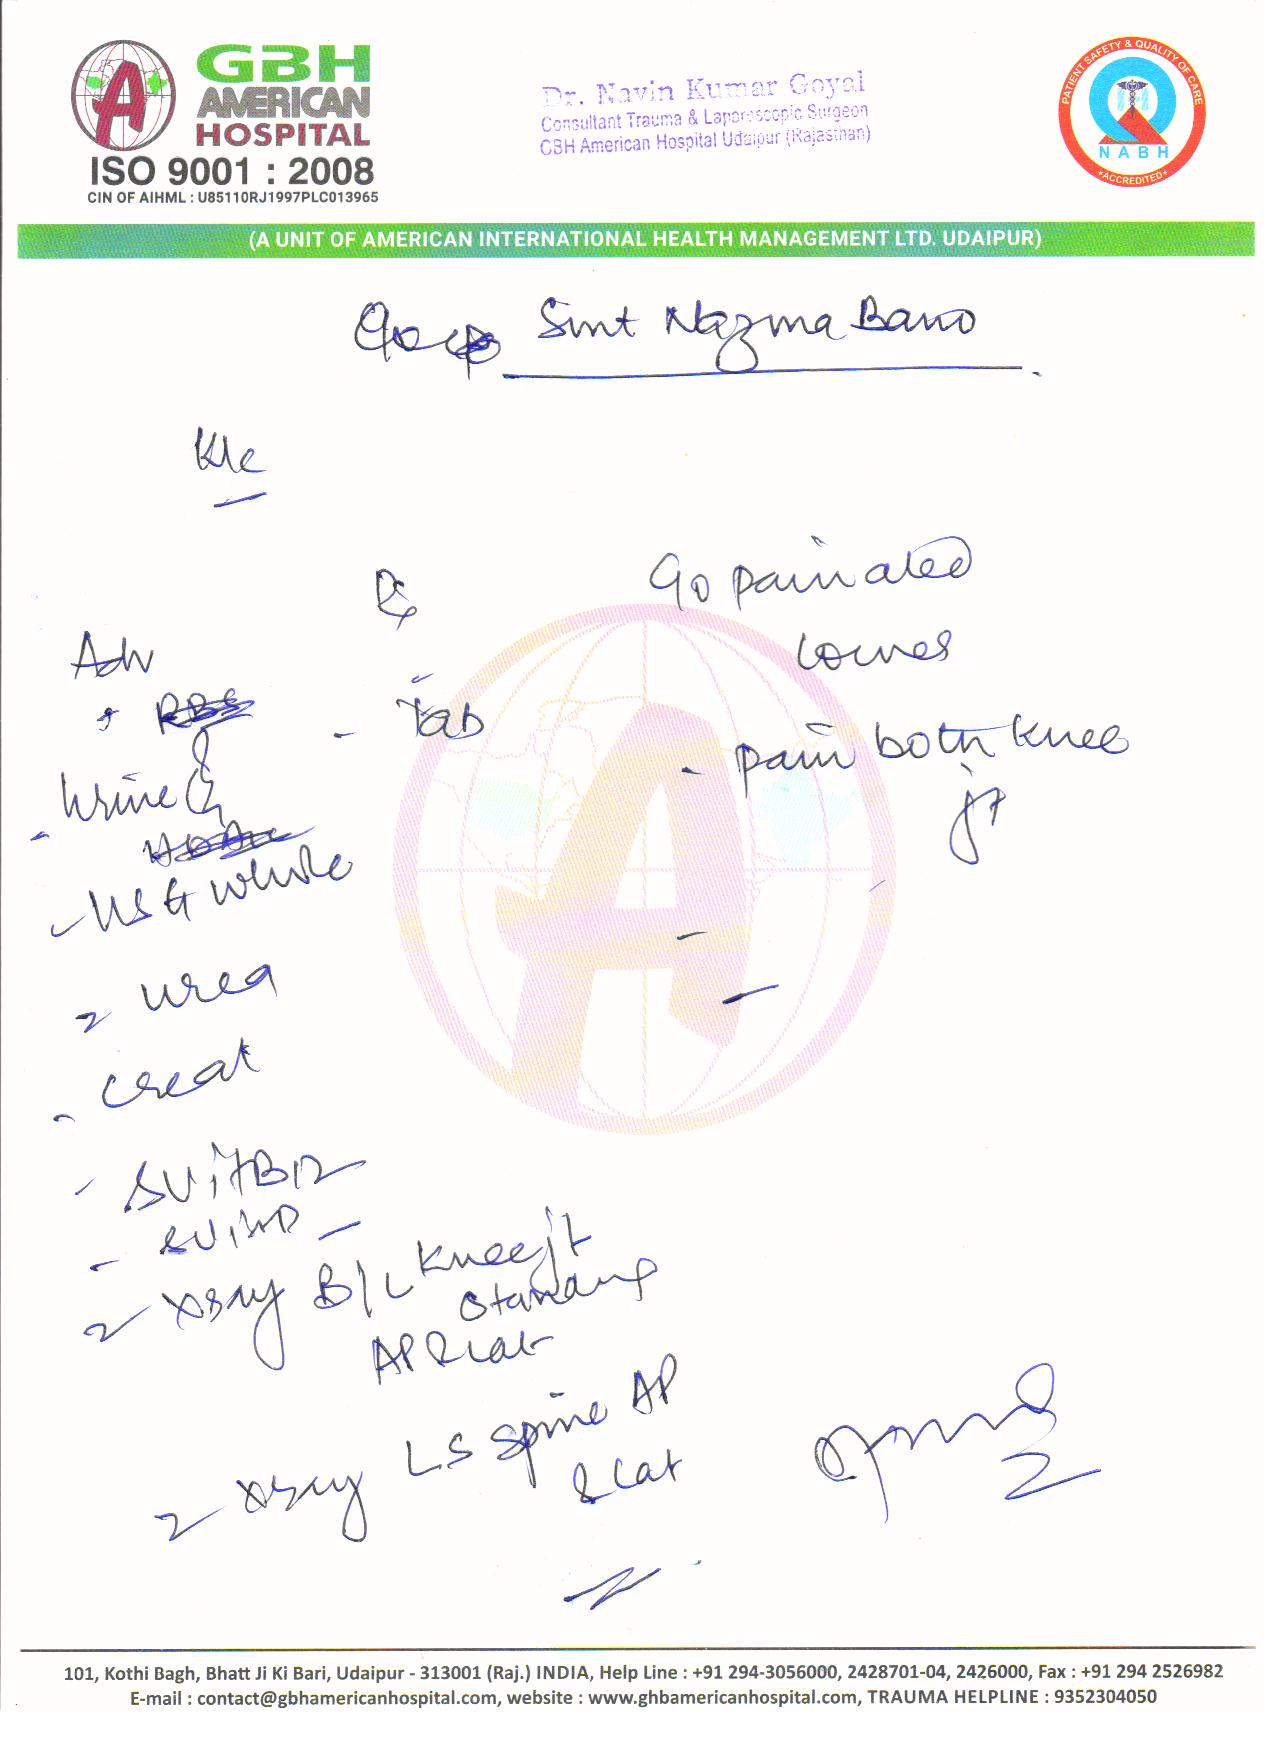 GBH
AMERICAN
HOSPITAL
ISO 9001 : 2008
CIN OF AIHML : U85110RJ1997PLC013965
Dr. Navin Kumar Goyal
Consultant Trauma & Laparoscopic Surgeon
GBH American Hospital Udaipur (Rajasthan)
PATIENT SAFETY & QUALITY OF CARE
NABH
ACCREDITED
(A UNIT OF AMERICAN INTERNATIONAL HEALTH MANAGEMENT LTD. UDAIPUR)
Smt Nazma Bano
K/c
Rx
Adv
- Tab
pain
lower
- pain both knee
jt
- Urine
- USG whole
- urea
- creat
- S Vit B12
- S Vit D
- Xray B/L Knee jt
standing
AP & Lat
- Xray LS Spine AP
& Lat
101, Kothi Bagh, Bhatt Ji Ki Bari, Udaipur - 313001 (Raj.) INDIA, Help Line : +91 294-3056000, 2428701-04, 2426000, Fax : +91 294 2526982
E-mail : contact@gbhamericanhospital.com, website : www.ghbamericanhospital.com, TRAUMA HELPLINE : 9352304050